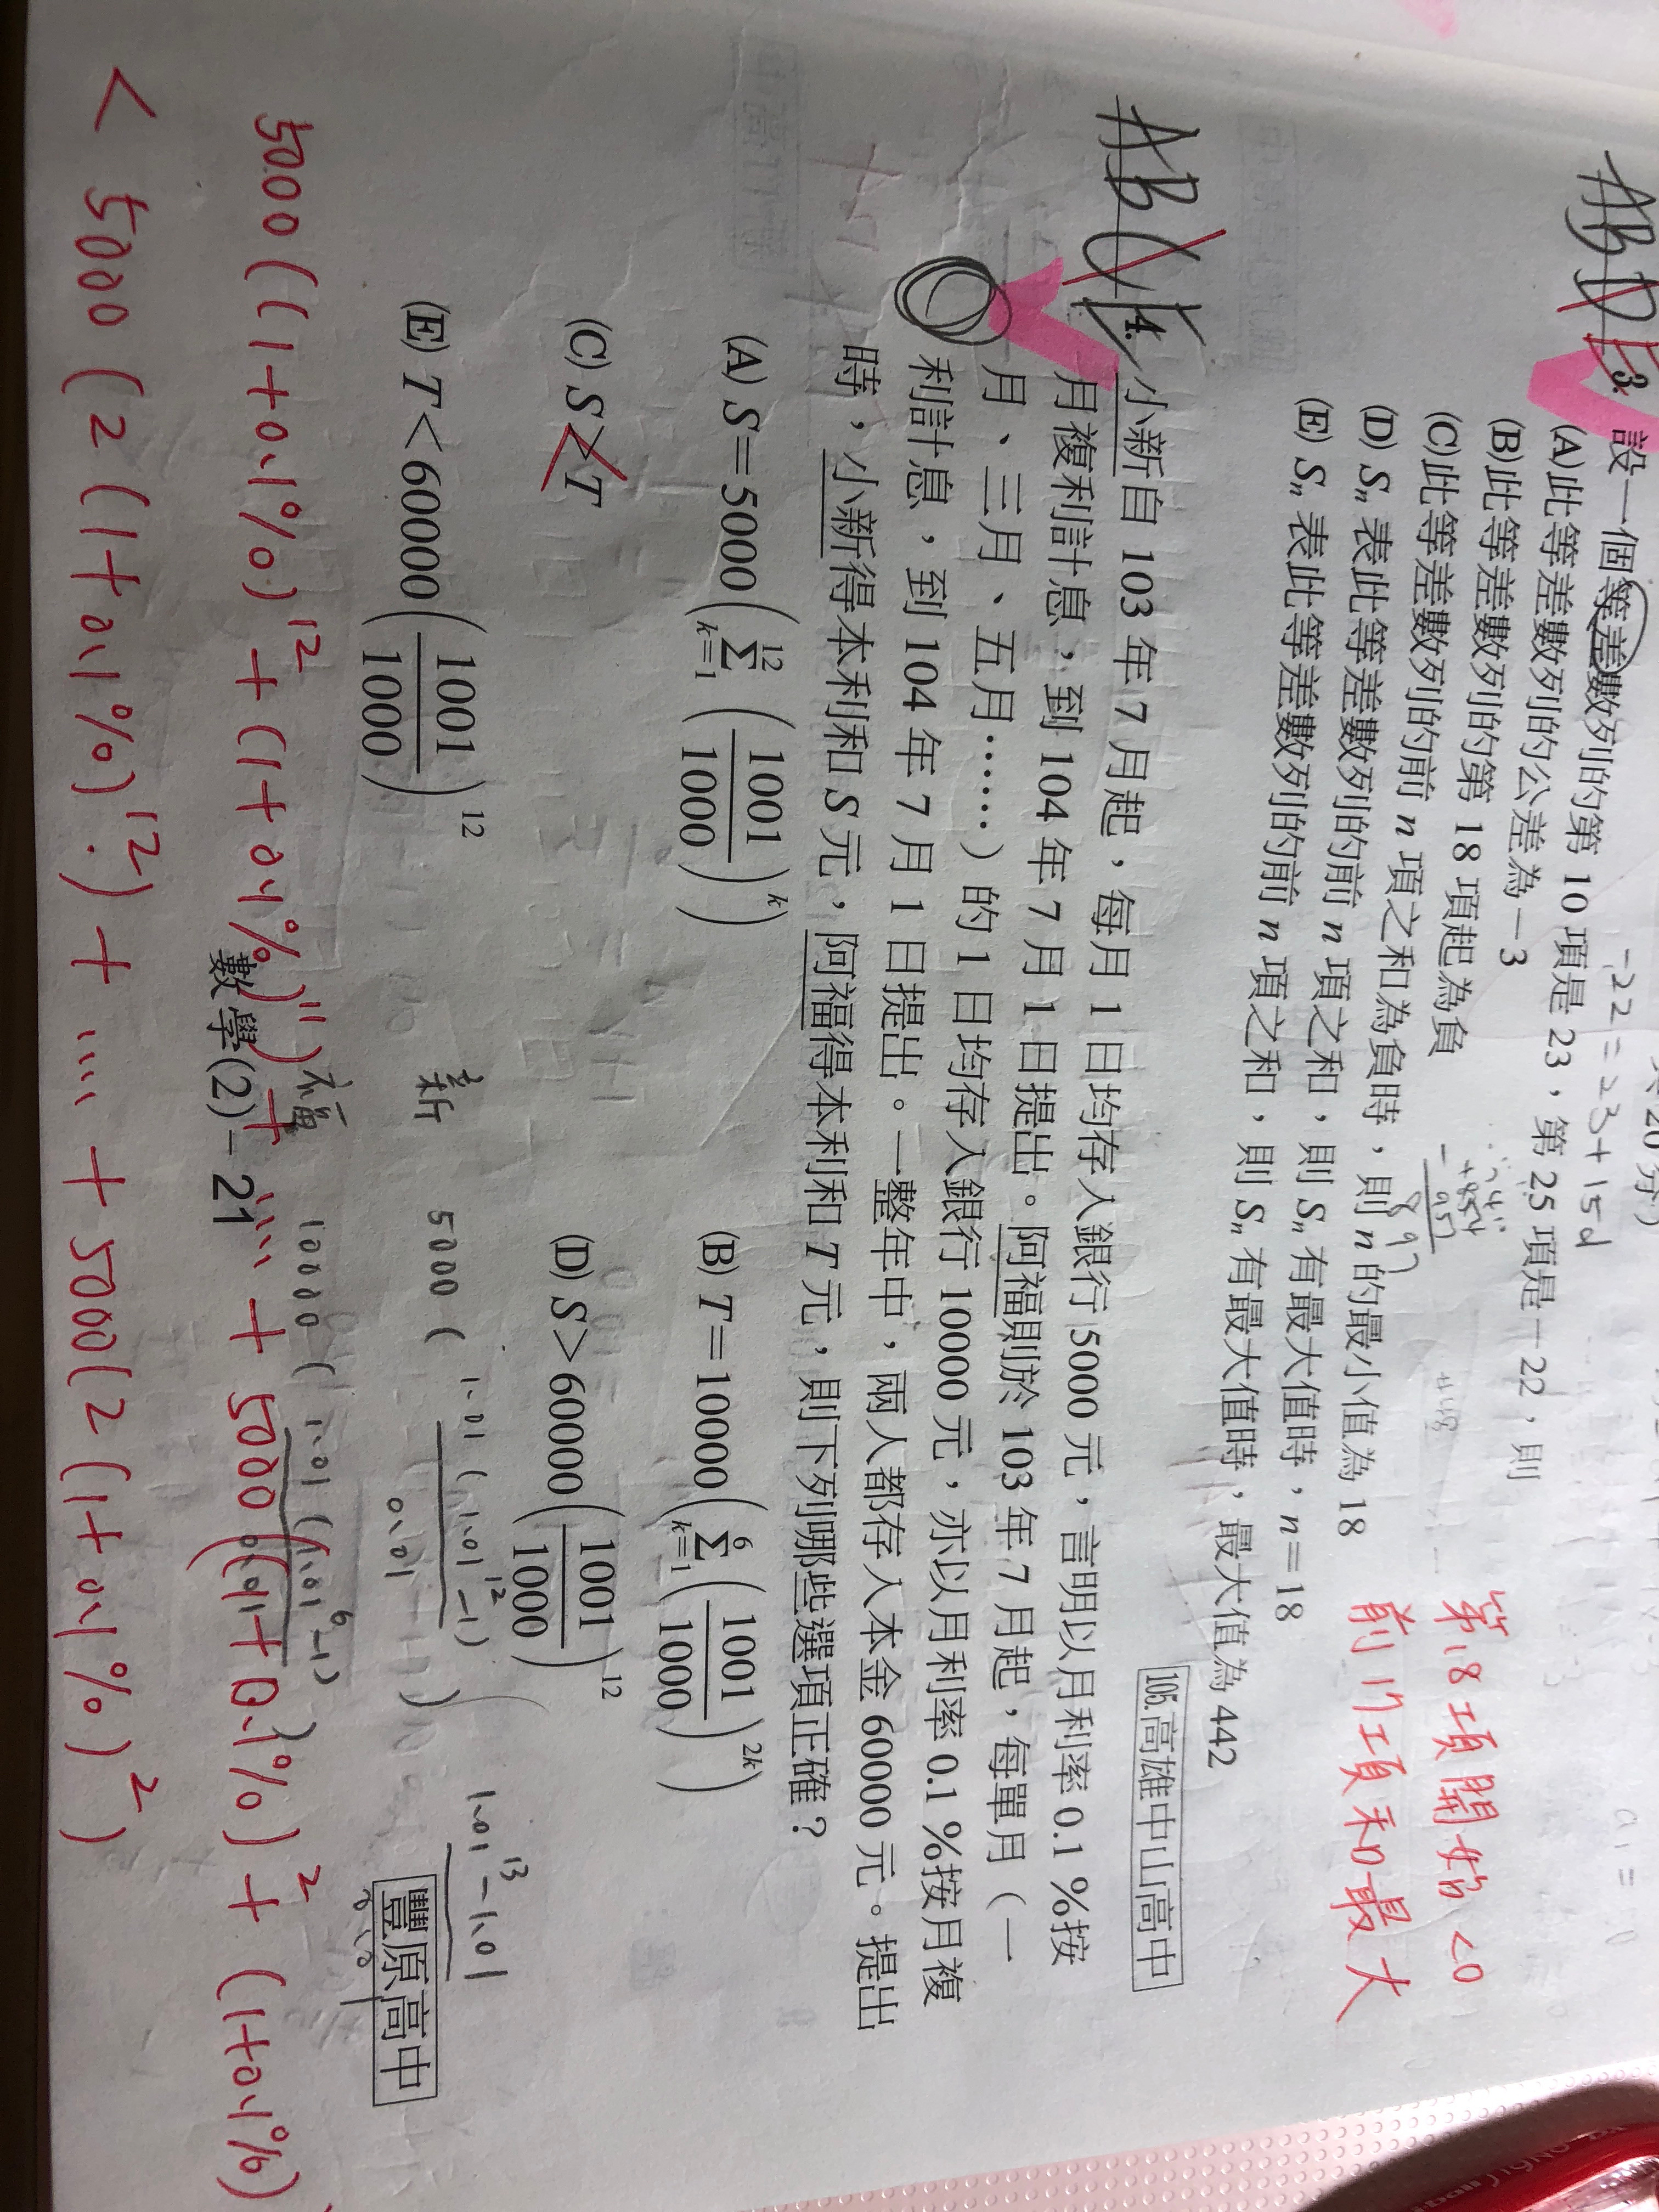 共20分）
-22=23+15d
ABD
3. 設一個等差數列的第 10 項是 23，第 25 項是－22，則
(A)此等差數列的公差為－3
(B)此等差數列的第 18 項起為負
(C)此等差數列的前 n 項之和為負時，則 n 的最小值為 18
(D) Sₙ 表此等差數列的前 n 項之和，則 Sₙ 有最大值時，n＝18
(E) Sₙ 表此等差數列的前 n 項之和，則 Sₙ 有最大值時，最大值為 442
第18項開始<0
前17項和最大
105.高雄中山高中
4. 小新自 103 年 7 月起，每月 1 日均存入銀行 5000 元，言明以月利率 0.1 %按
月複利計息，到 104 年 7 月 1 日提出。阿福則於 103 年 7 月起，每單月（一
月、三月、五月……）的 1 日均存入銀行 10000 元，亦以月利率 0.1 %按月複
利計息，到 104 年 7 月 1 日提出。一整年中，兩人都存入本金 60000 元。提出
時，小新得本利和 S 元，阿福得本利和 T 元，則下列哪些選項正確？
(A) S＝5000(Σ_{k=1}^{12} (1001/1000)^k)
(B) T＝10000(Σ_{k=1}^{6} (1001/1000)^{2k})
(C) S>T
(D) S>60000(1001/1000)^{12}
(E) T<60000(1001/1000)^{12}
新 5000 ( 1.01(1.01^12-1) / 0.01 )
1.01^13-1.01
福 10000 ( 1.01(1.01^6-1) / 0.01 )
豐原高中
5000((1+0.1%)^12+(1+0.1%)^11)+……+5000((1+0.1%)^2+(1+0.1%)
數學(2)－21
< 5000(2(1+0.1%)^12)+……+5000(2(1+0.1%)^2)